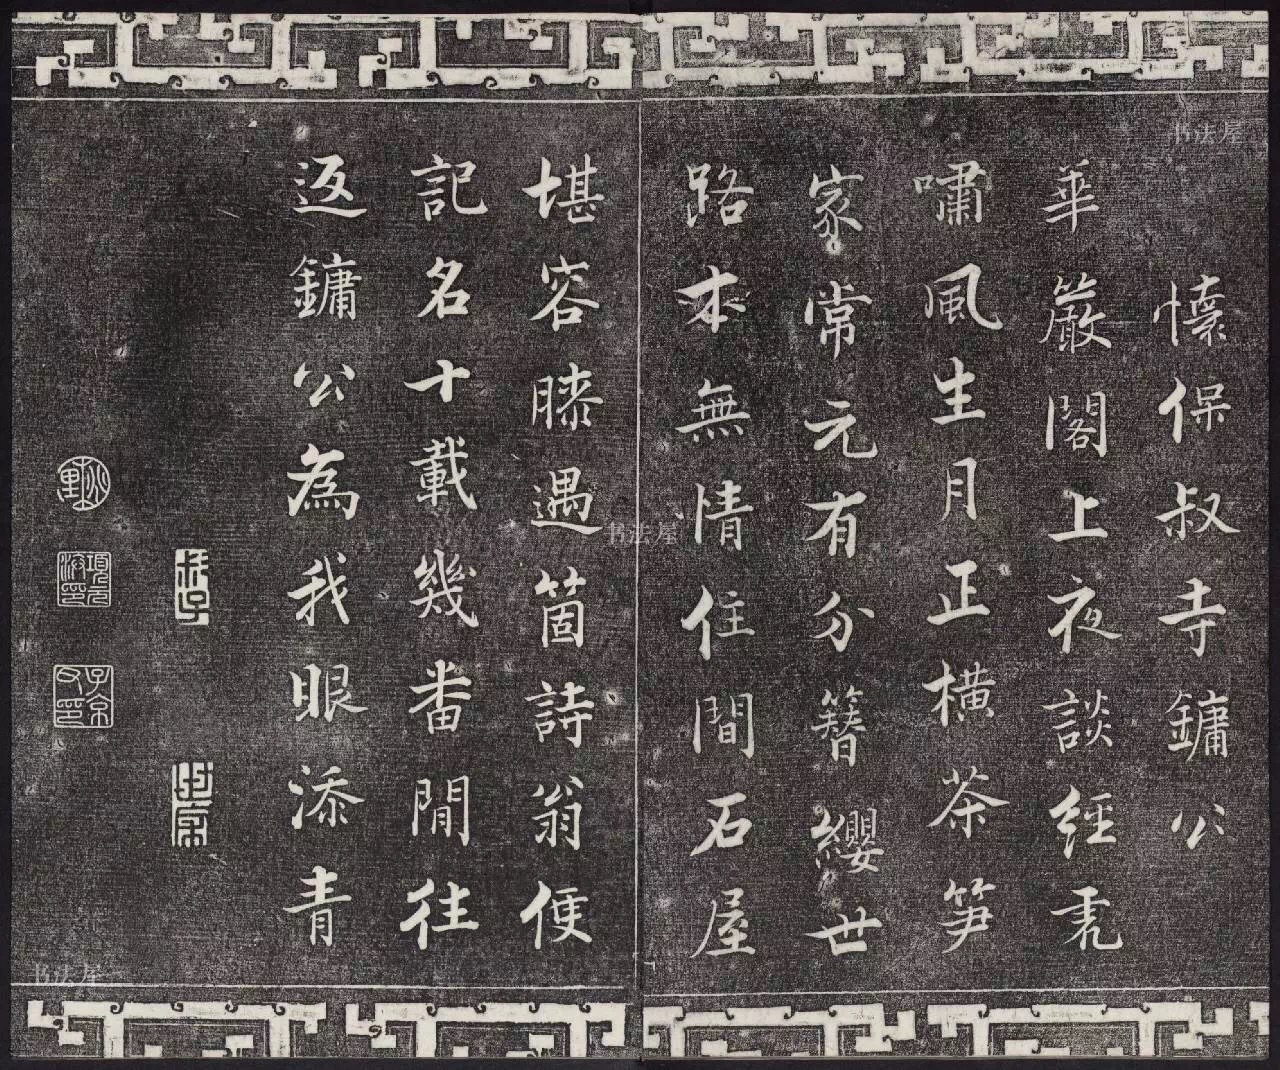 懷保叔寺鏞公
華嚴閣上夜談經虎
嘯風生月正橫茶笋
家常元有分簪纓世
路本無情住間石屋
堪容膝遇箇詩翁便
記名十載幾番閒往
返鏞公為我眼添青
项元
子京
书法屋
书法屋
书法屋